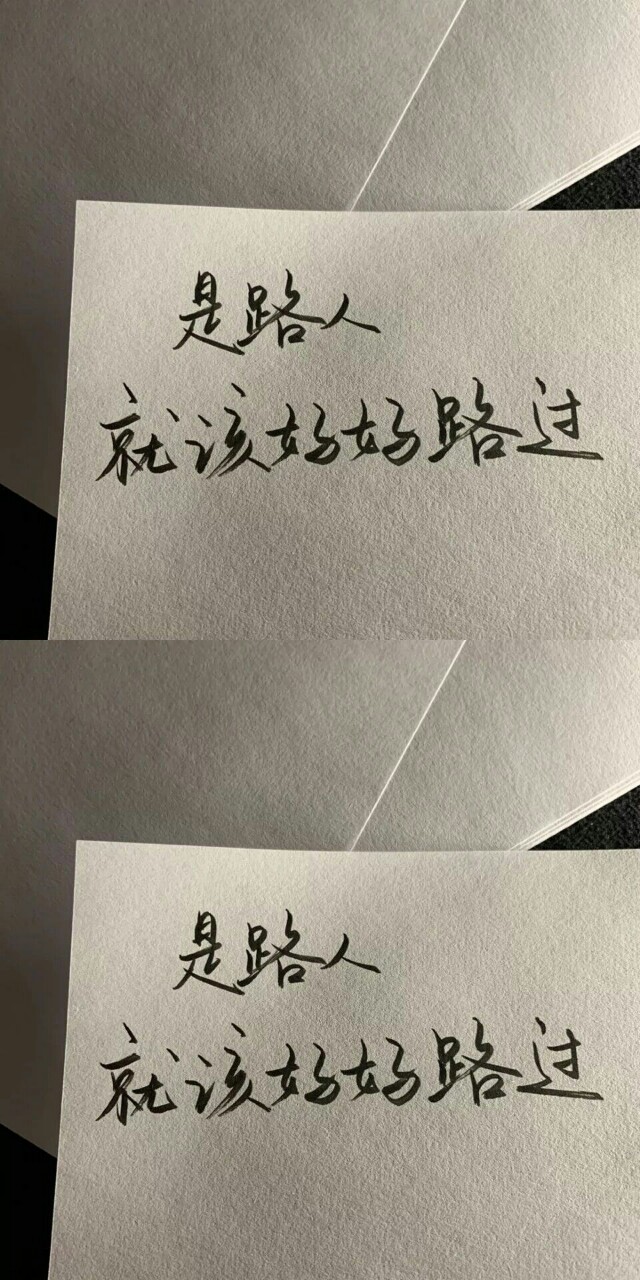 是路人
就该好好路过
是路人
就该好好路过